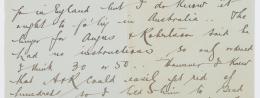 for in England but I do know it
ought to go big in Australia.. The
buyer for Angus & Robertson said he
had no instructions so only ordered
I think 30 or 50.. However I know
that A&R could easily get rid of
hundreds so I let him to